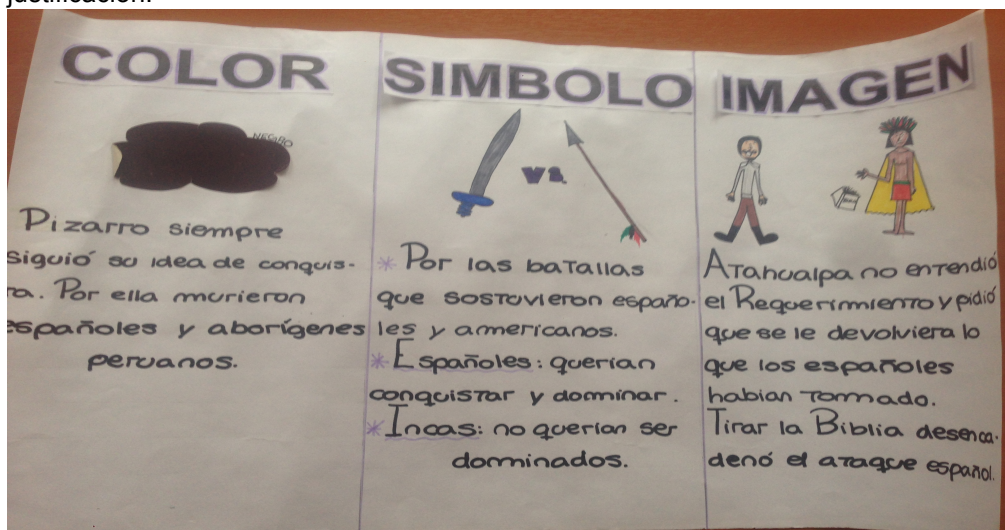 justificación.
COLOR
NEGRO
Pizarro siempre
siguió su idea de conquis-
ta. Por ella murieron
españoles y aborígenes
peruanos.
SIMBOLO
VS.
* Por las batallas
que sostuvieron españo-
les y americanos.
* Españoles: querían
conquistar y dominar.
* Incas: no querían ser
dominados.
IMAGEN
Atahualpa no entendió
el Requerimiento y pidió
que se le devolviera lo
que los españoles
habían tomado.
Tirar la Biblia desenca-
denó el ataque español.